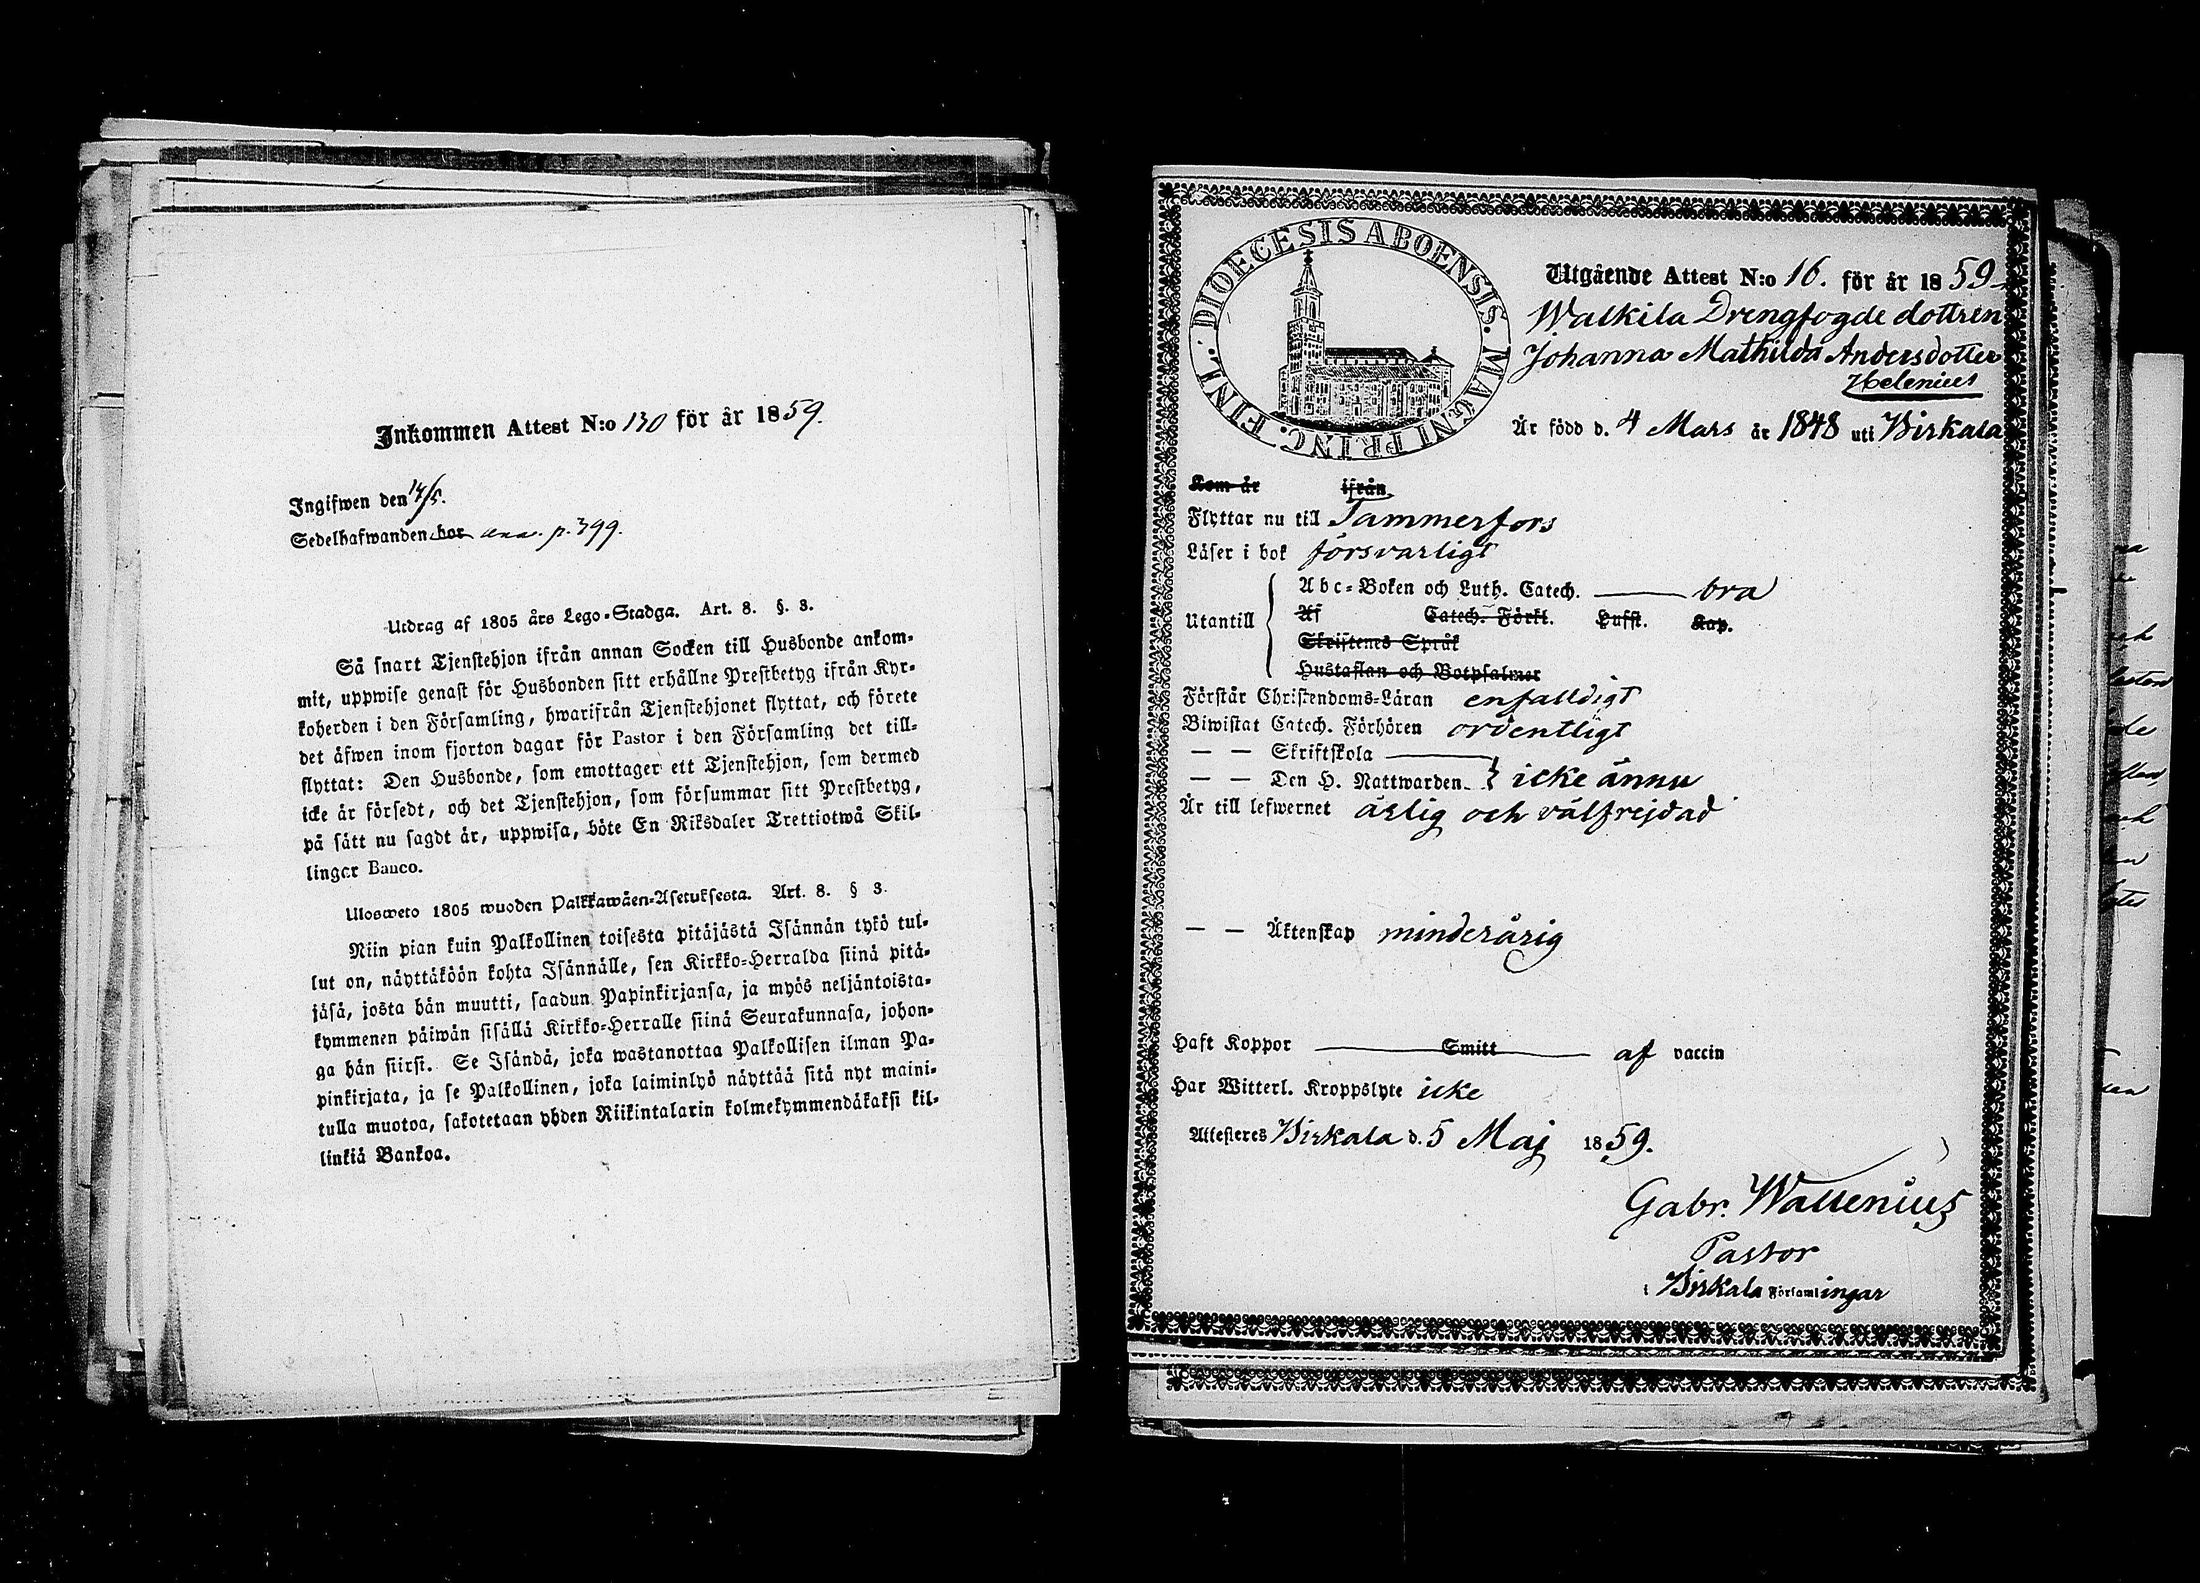 Inkommen Attest N:o 130 för år 1859.
Ingifwen den 14/5.
Sedelhafwanden bor ann. p. 399.
Utdrag af 1805 års Lego-Stadga. Art. 8. §. 3.
Så snart Tjenstehjon ifrån annan Socken till Husbonde ankom-
mit, uppwise genast för Husbonden sitt erhållne Prestbetyg ifrån Kyr-
koherden i den Församling, hwarifrån Tjenstehjonet flyttat, och förete
det äfwen inom fjorton dagar för Pastor i den Församling det till-
flyttat: Den Husbonde, som emottager ett Tjenstehjon, som dermed
icke är försedt, och det Tjenstehjon, som försummar sitt Prestbetyg,
på sätt nu sagdt är, uppwisa, böte En Riksdaler Trettiotwå Skil-
lingar Banco.
Ulosweto 1805 wuoden Palkkawäen-Asetuksesta. Art. 8. § 3.
Niin pian kuin Palkollinen toisesta pitäjästä Isännän tykö tul-
lut on, näyttäköön kohta Isännälle, sen Kirkko-Herralda siinä pitä-
jäsä, josta hän muutti, saadun Papinkirjansa, ja myös neljäntoista-
kymmenen päiwän sisällä Kirkko-Herralle siinä Seurakunnasa, johon-
ga hän siirsi. Se Isändä, joka wastanottaa Palkollisen ilman Pa-
pinkirjata, ja se Palkollinen, joka laiminlyö näyttää sitä nyt maini-
tulla muotoa, sakotetaan yhden Riikintalarin kolmekymmendäkaksi kil-
linkiä Bankoa.
DIOECESIS ABOENSIS. MAGNI PRINC. FINL.
Utgående Attest N:o 16. för år 1859
Walkila Drengfogde dottren
Johanna Mathilda Andersdotter
Helenius
Är född d. 4 Mars år 1848 uti Birkala
Kom år ifrån
Flyttar nu till Tammerfors
Läser i bok försvarligt
Utantill
Abc-Boken och Luth. Catech. bra
Af Catech. Förkl. Hufst. Kap.
Skriftenes Språk
Hustaflan och Botpsalmer
Förstår Christendoms-Läran enfalldigt
Biwistat Catech. Förhören ordentligt
— — Skriftskola
— — Den H. Nattwarden icke ännu
Är till lefwernet ärlig och välfrejdad
— — Äktenskap minderårig
Haft Koppor Smitt af vaccin
Har Witterl. Kroppslyte icke
Attesteres Birkala d. 5 Maj 1859.
Gabr. Wallenius
Pastor
i Birkala Församlingar